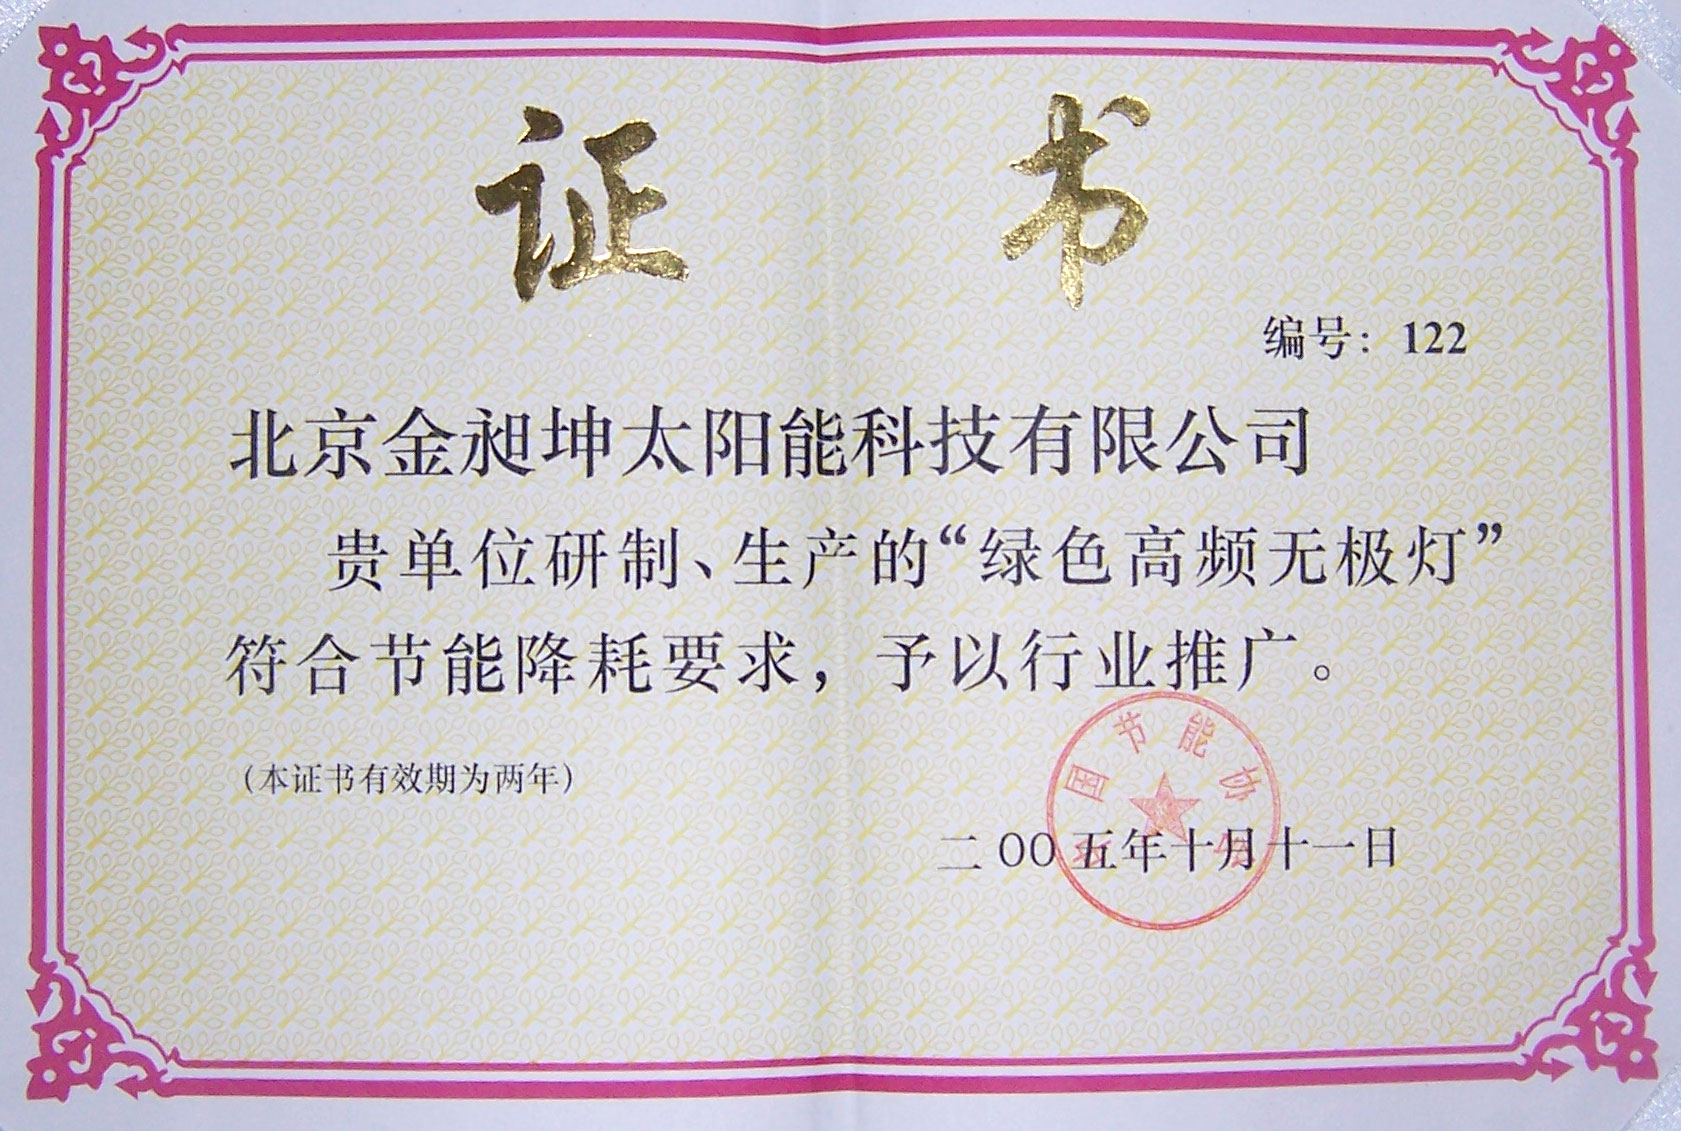 证书
编号：122
北京金昶坤太阳能科技有限公司
贵单位研制、生产的“绿色高频无极灯”
符合节能降耗要求，予以行业推广。
（本证书有效期为两年）
中国节能协会
二〇〇五年十月十一日